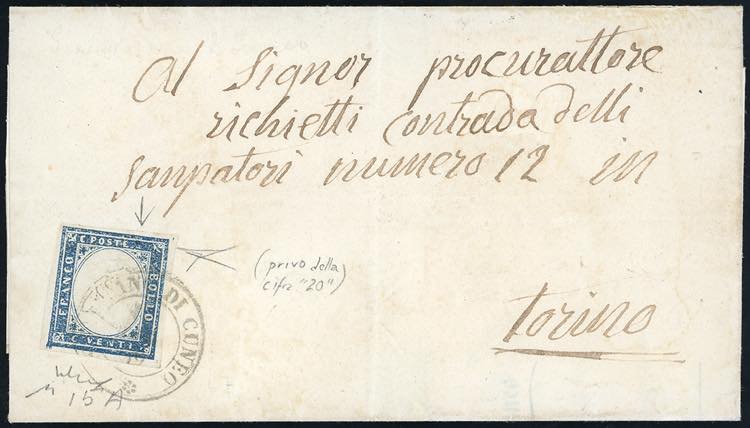 Al Signor procurattore
richietti contrada delli
Sanpatori numero 12 in
Torino
(privo della
cifra "20")
C POSTE
FRANCO
BOLLO
C VENTI
DI CUNEO
n 15 A